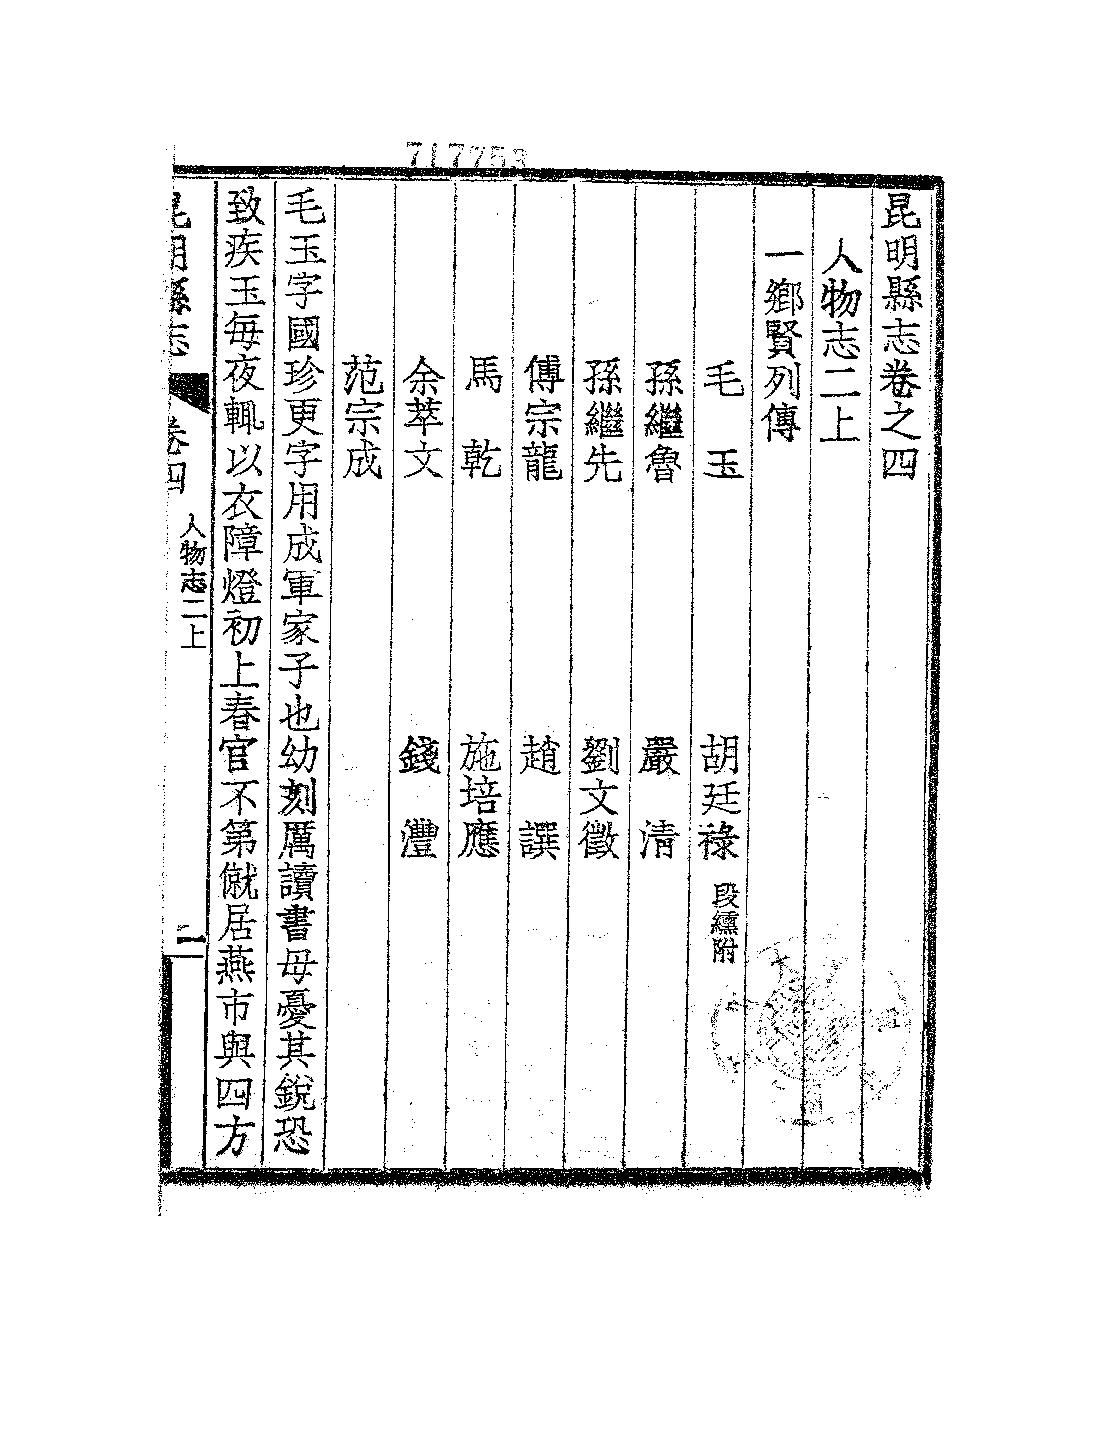 717753
昆明縣志卷之四
人物志二上
一鄉賢列傳
毛玉 胡廷祿 段纁附
孫繼魯 嚴清
孫繼先 劉文徵
傅宗龍 趙譔
馬乾 施培應
余萃文 錢灃
范宗成
毛玉字國珍更字用成軍家子也幼刻厲讀書母憂其銳恐
致疾玉每夜輒以衣障燈初上春官不第僦居燕市與四方
昆明縣志 卷四 人物志二上 一